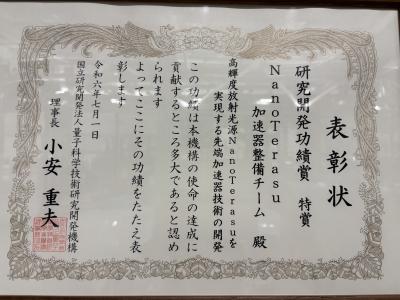 表彰状
研究開発功績賞 特賞
NanoTerasu
加速器整備チーム 殿
高輝度放射光源NanoTerasuを
実現する先端加速器技術の開発
この功績は本機構の使命の達成に
貢献するところ多大であると認め
られます
よってここにその功績をたたえ表
彰します
令和六年七月一日
国立研究開発法人量子科学技術研究開発機構
理事長 小安 重夫